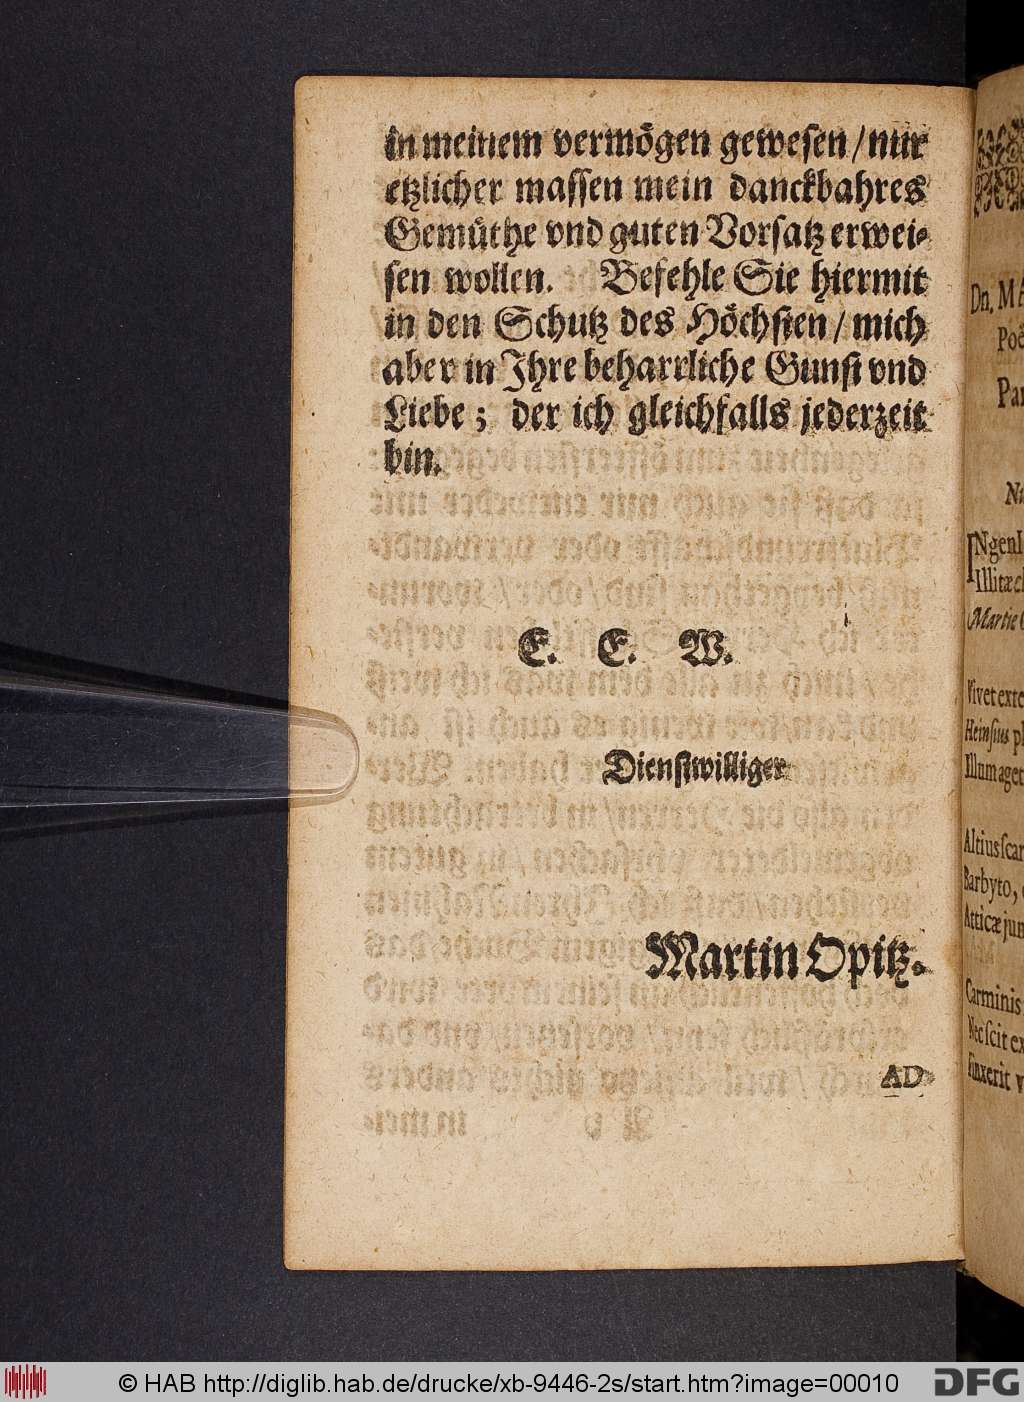 in meinem vermögen gewesen / nur
etzlicher massen mein danckbahres
Gemüthe vnd guten Vorsatz erwei-
sen wollen. Befehle Sie hiermit
in den Schutz des Höchsten / mich
aber in Ihre beharrliche Gunst vnd
Liebe ; der ich gleichfalls jederzeit
bin.
E. E. W.
Dienstwilliger
Martin Opitz.
AD
Dn. MA
Poë
Par
NgenI
Illitæ
Martie
Vivet exte
Heinsius
Illum aget
Altius scan
Barbyto,
Atticæ jun
Carminis
Nec scit ex
finxerit
© HAB http://diglib.hab.de/drucke/xb-9446-2s/start.htm?image=00010
DFG